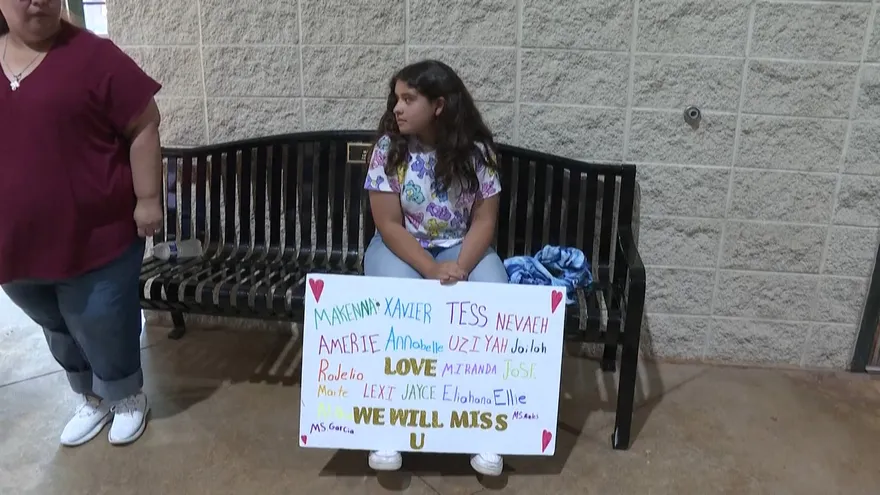 MAKENNA XAVIER TESS NEVAEH
AMERIE Annabelle UZIYAH Jailah
Rojelio LOVE MIRANDA JOSE
Maite LEXI JAYCE Eliahana Ellie
WE WILL MISS
MS. Garcia U